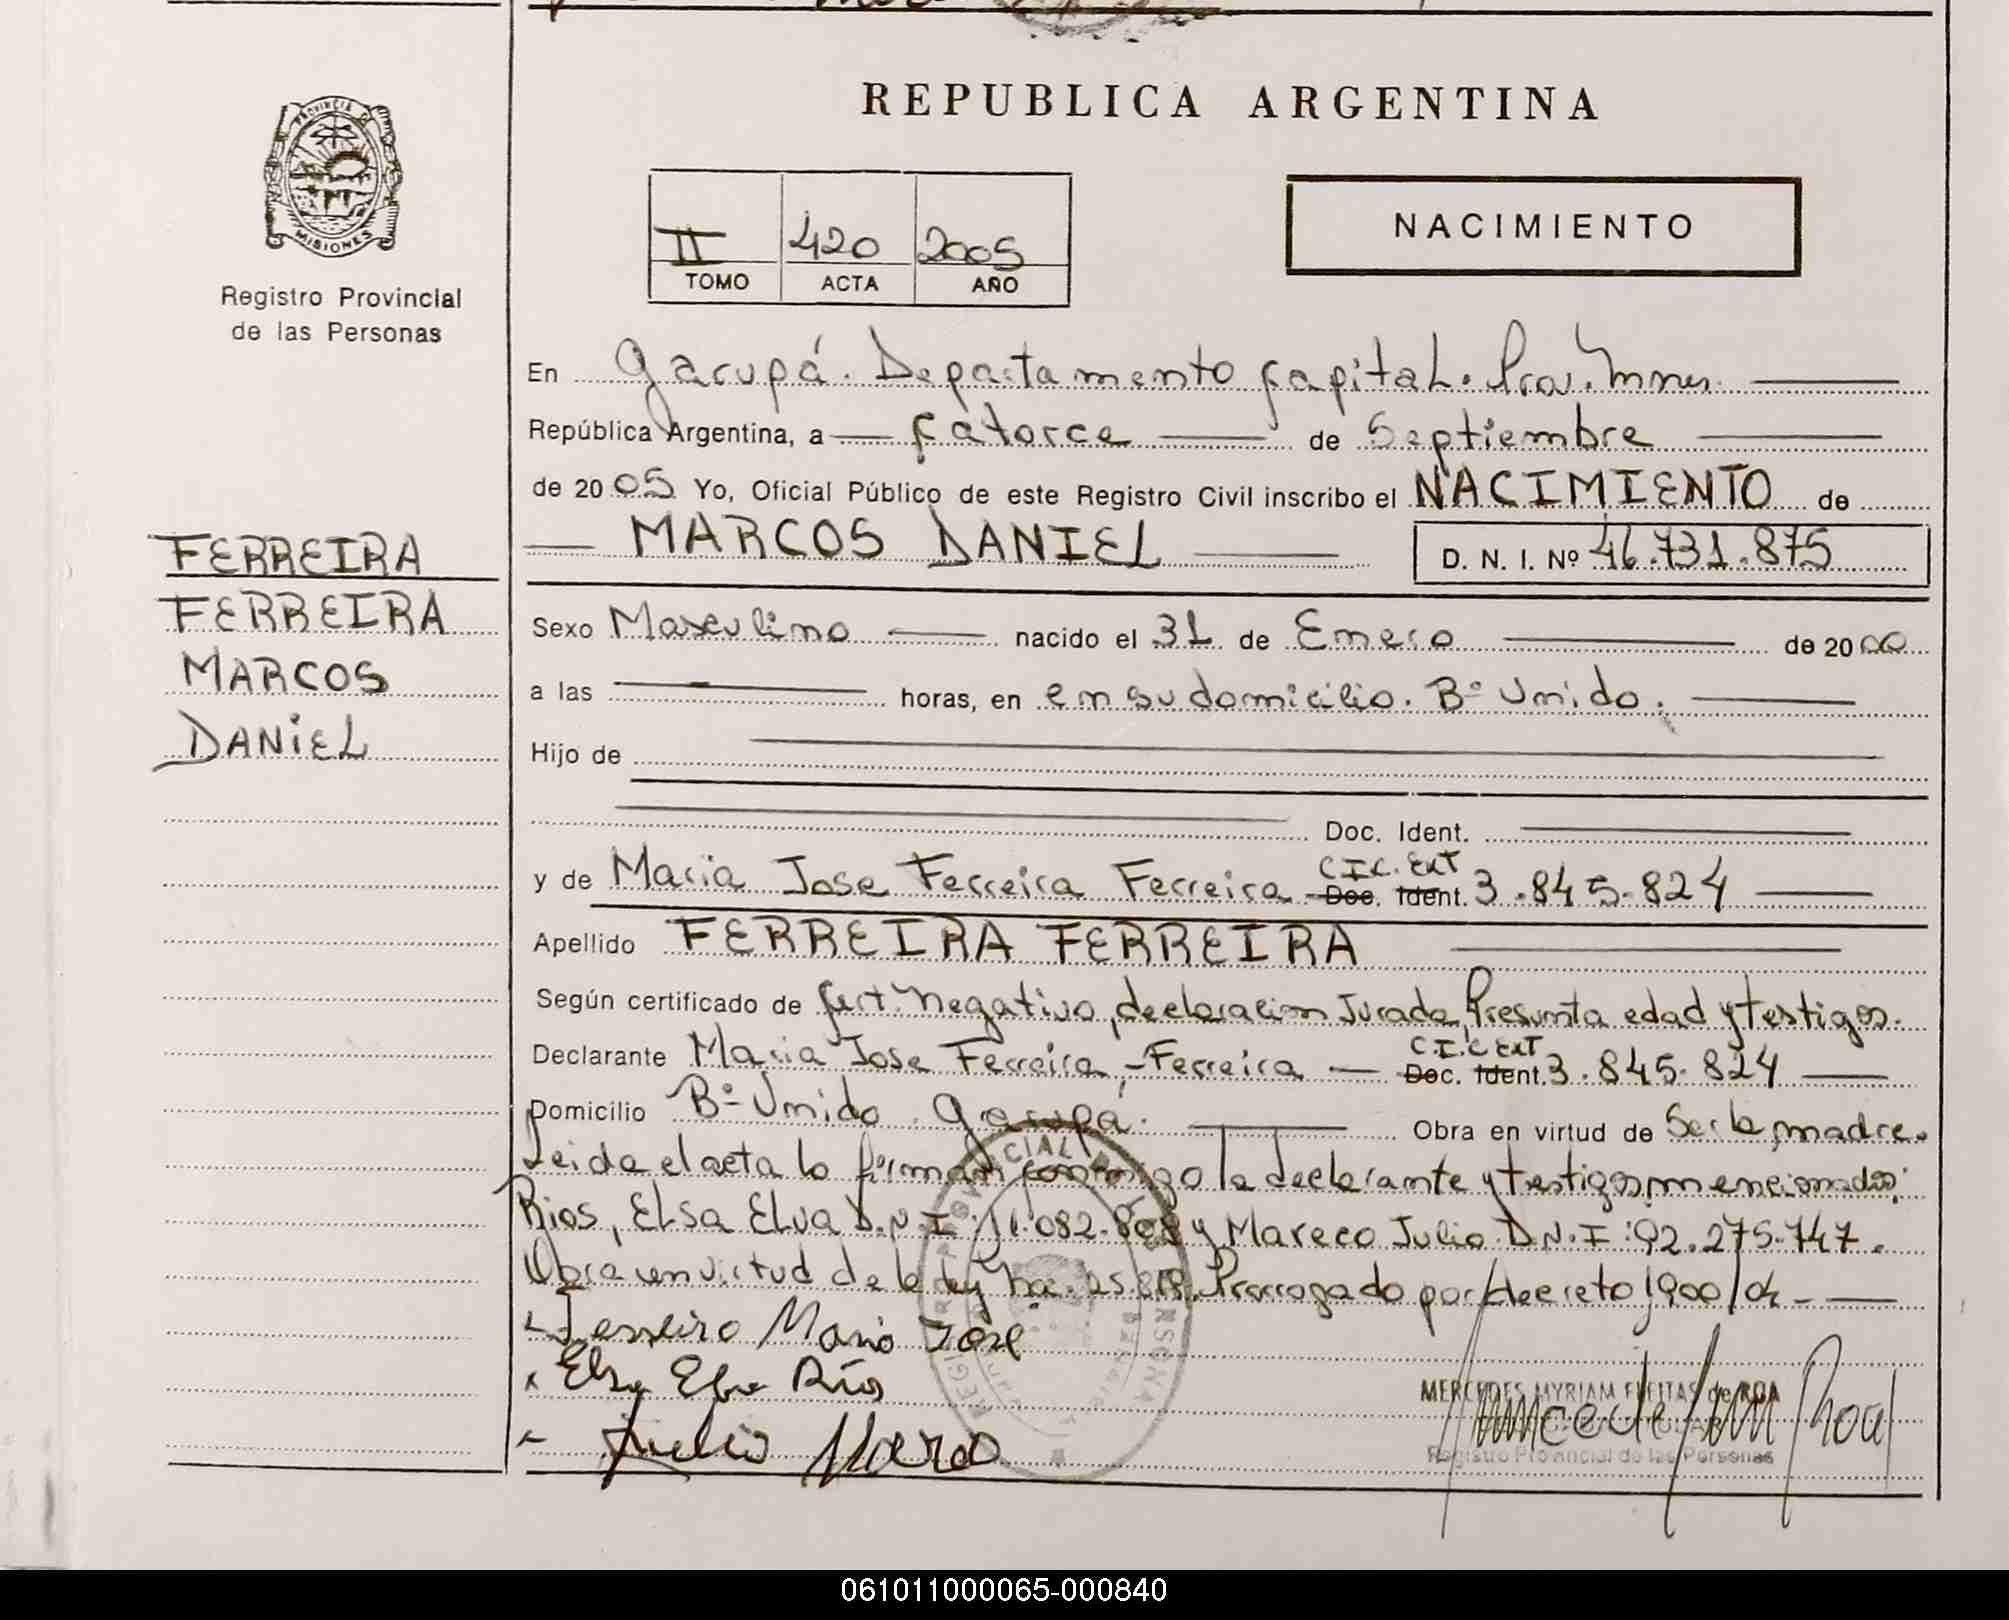 REPUBLICA ARGENTINA
PROVINCIA DE
MISIONES
Registro Provincial
de las Personas
II 420 2005
TOMO ACTA AÑO
NACIMIENTO
En Garupá. Departamento Capital. Prov. Mnes.
República Argentina, a catorce de Septiembre
de 2005 Yo, Oficial Público de este Registro Civil inscribo el NACIMIENTO de
MARCOS DANIEL D. N. I. Nº 46.731.875
FERREIRA
FERREIRA
MARCOS
DANIEL
Sexo Masculino nacido el 31 de Enero de 2000
a las horas, en en su domicilio. Bº Unido.
Hijo de
Doc. Ident.
y de Maria Jose Ferreira Ferreira C.I.C. Ext Doc. Ident. 3.845.824
Apellido FERREIRA FERREIRA
Según certificado de Cert. Negativo, declaracion Jurada, Presunta edad y testigos.
Declarante Maria Jose Ferreira, -Ferreira C.I.C Ext Doc. Ident. 3.845.824
Domicilio Bº Unido. Garupá. Obra en virtud de Ser la madre.
Leida el acta la firman conmigo la declarante y testigos mencionados:
Rios, Elsa Elva D.N.I: 11.082.808 y Mareco Julio D.N.I: 92.275.747.
Obra en virtud de la ley nº 25.819. Prorrogado por decreto 1900/04
Maria Jose
Elsa Elva Ríos
Julio Mareco
MERCEDES MYRIAM FLEITAS de ROA
Registro Provincial de las Personas
061011000065-000840